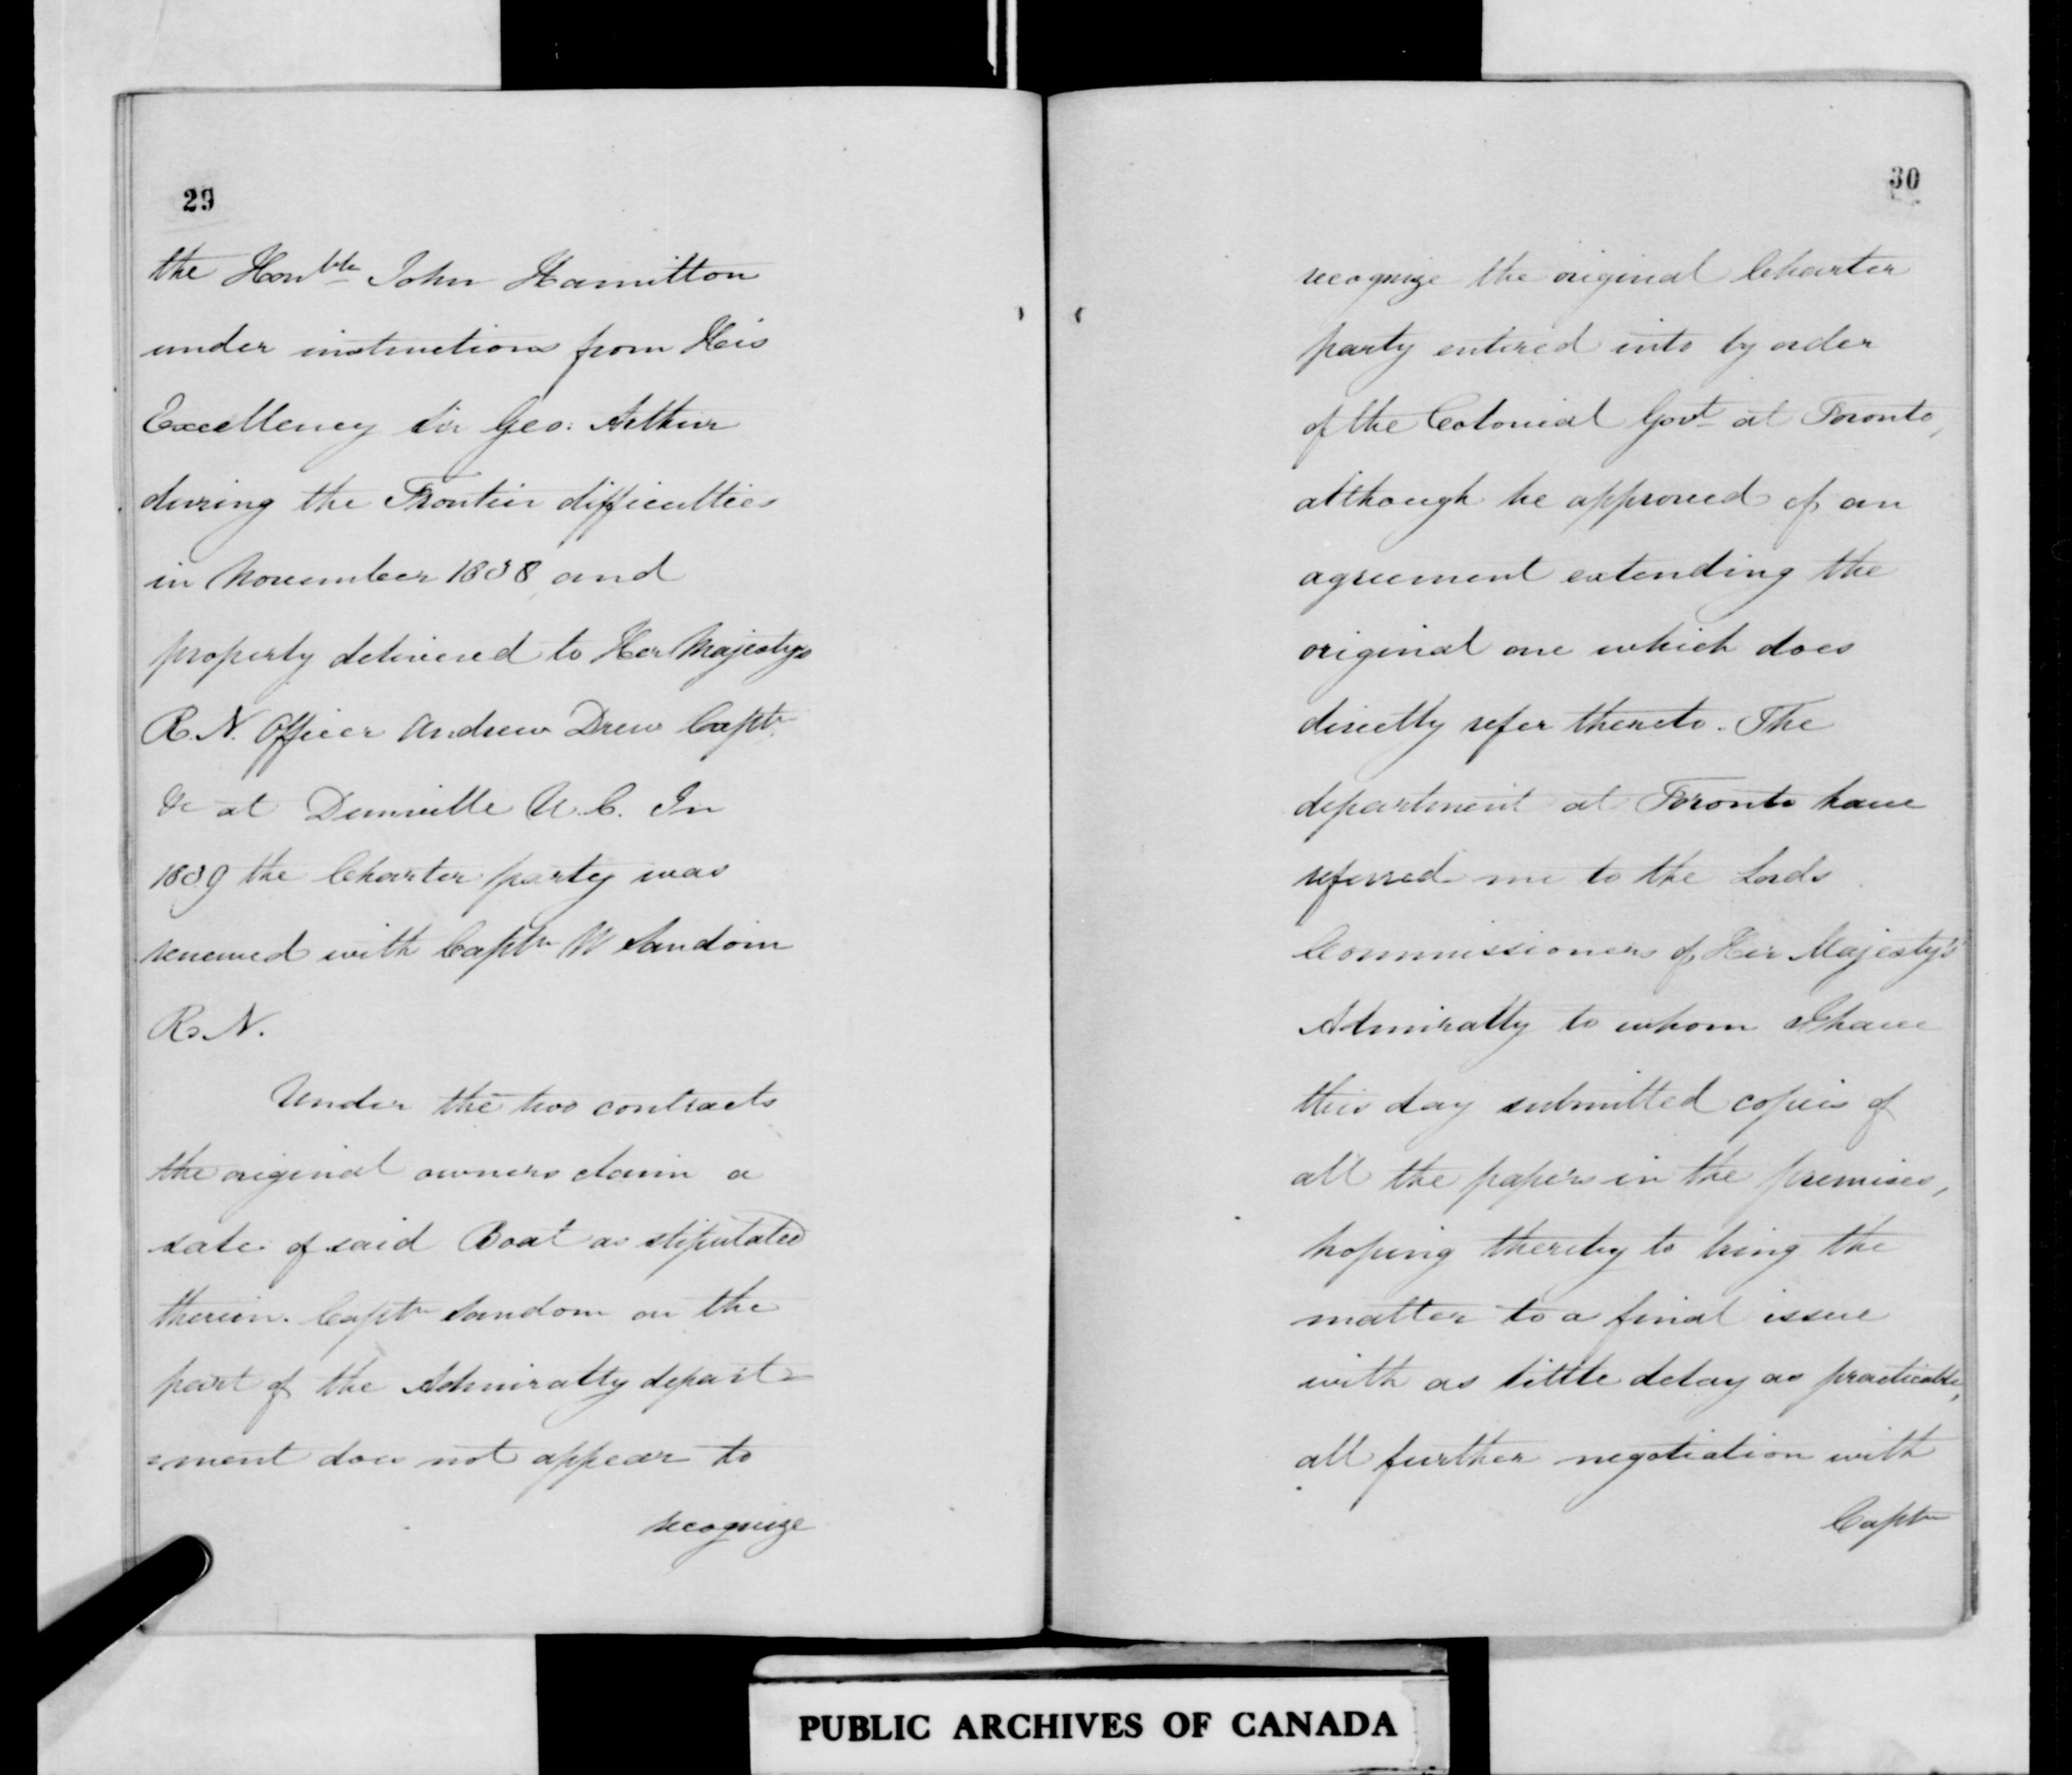 29
the Honble John Hamilton
under instructions from His
Excellency Sir Geo: Arthur
during the Frontier difficulties
in November 1838, and
property delivered to Her Majestys
R.N. Officer Andrew Drew Captn
&c at Dunnville U.C. In
1839 the Charter party was
renewed with Captn W Sandom
R.N.
Under the two contracts
the original owners claim a
sale of said Boat as stipulated
therein. Captn Sandom on the
part of the Admiralty depart=
=ment does not appear to
recognize
30
recognize the original Charter
party entered into by order
of the Colonial Govt at Toronto,
although he approved of an
agreement extending the
original one which does
directly refer thereto. The
department at Toronto have
referred me to the Lords
Commissioners of Her Majesty's
Admiralty to whom I have
this day submitted copies of
all the papers in the premises,
hoping thereby to bring the
matter to a final issue
with as little delay as practicable,
all further negotiation with
Captn
PUBLIC ARCHIVES OF CANADA